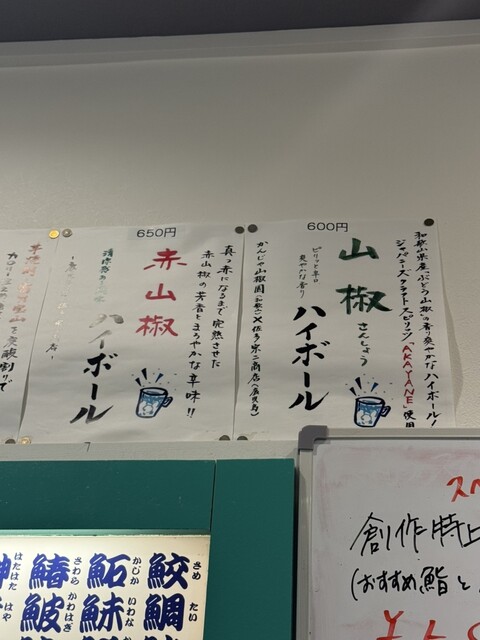 600円
和歌山県産"ぶどう山椒"の香り爽やかなハイボール!
ジャパニーズクラフトスピリッツ「AKAYANE」使用
山椒
さんしょう
ハイボール
ピリッと辛口
爽やかな香り
かんじゃ山椒園(和歌山)×佐多宗二商店(鹿児島)
650円
真っ赤になるまで完熟させた
赤山椒の芳香とまろやかな辛味!!
赤山椒
ハイボール
創作特上
(おすすめ鮨と
鮫 さめ
鮖 かじか
鰆 さわら
はたはた
鯛 たい
いわな
鮍 かわはぎ
はや